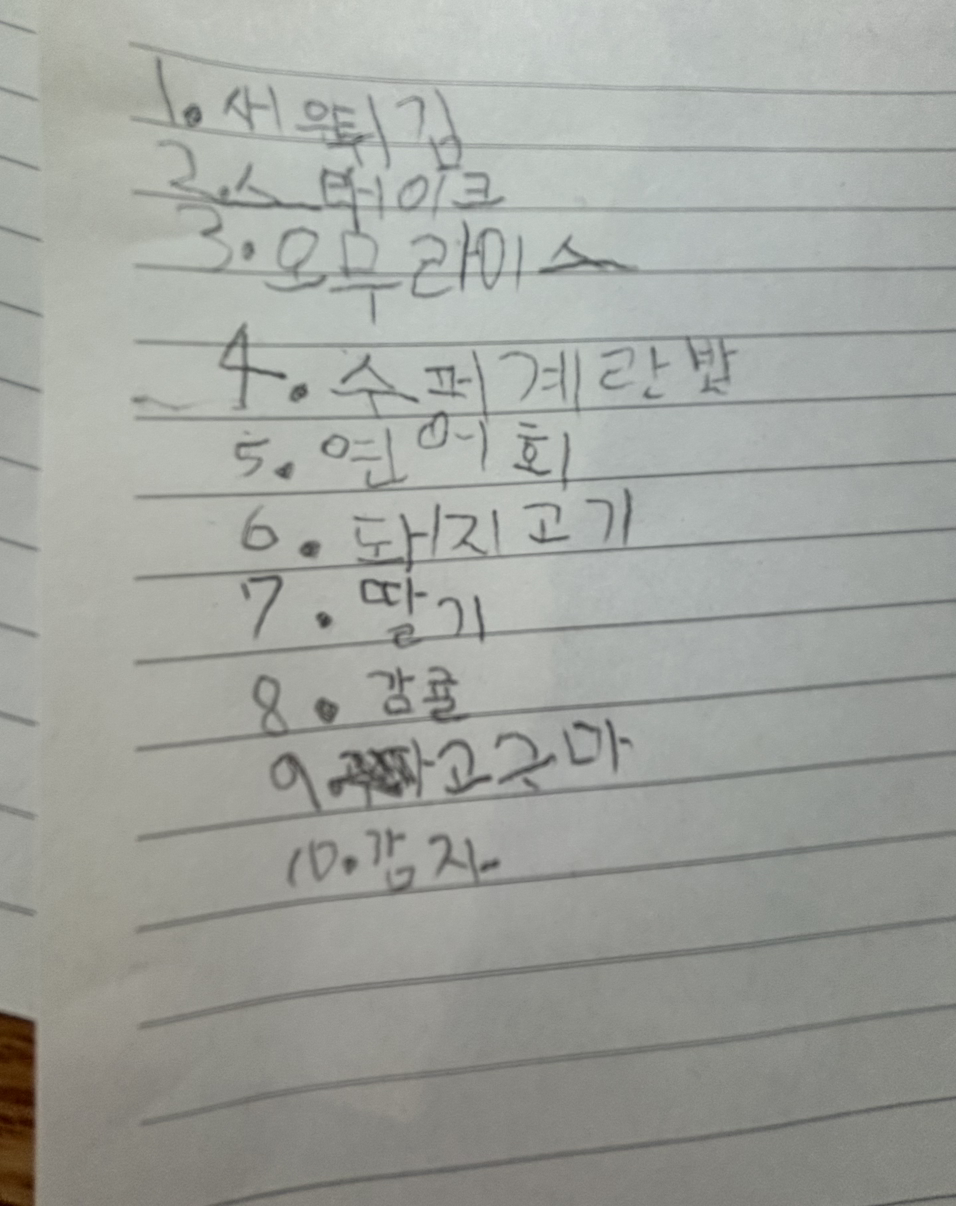 1. 새우튀김
2. 스테이크
3. 오무라이스
4. 수퍼계란밥
5. 연어회
6. 돼지고기
7. 딸기
8. 감귤
9. 고구마
10. 감자